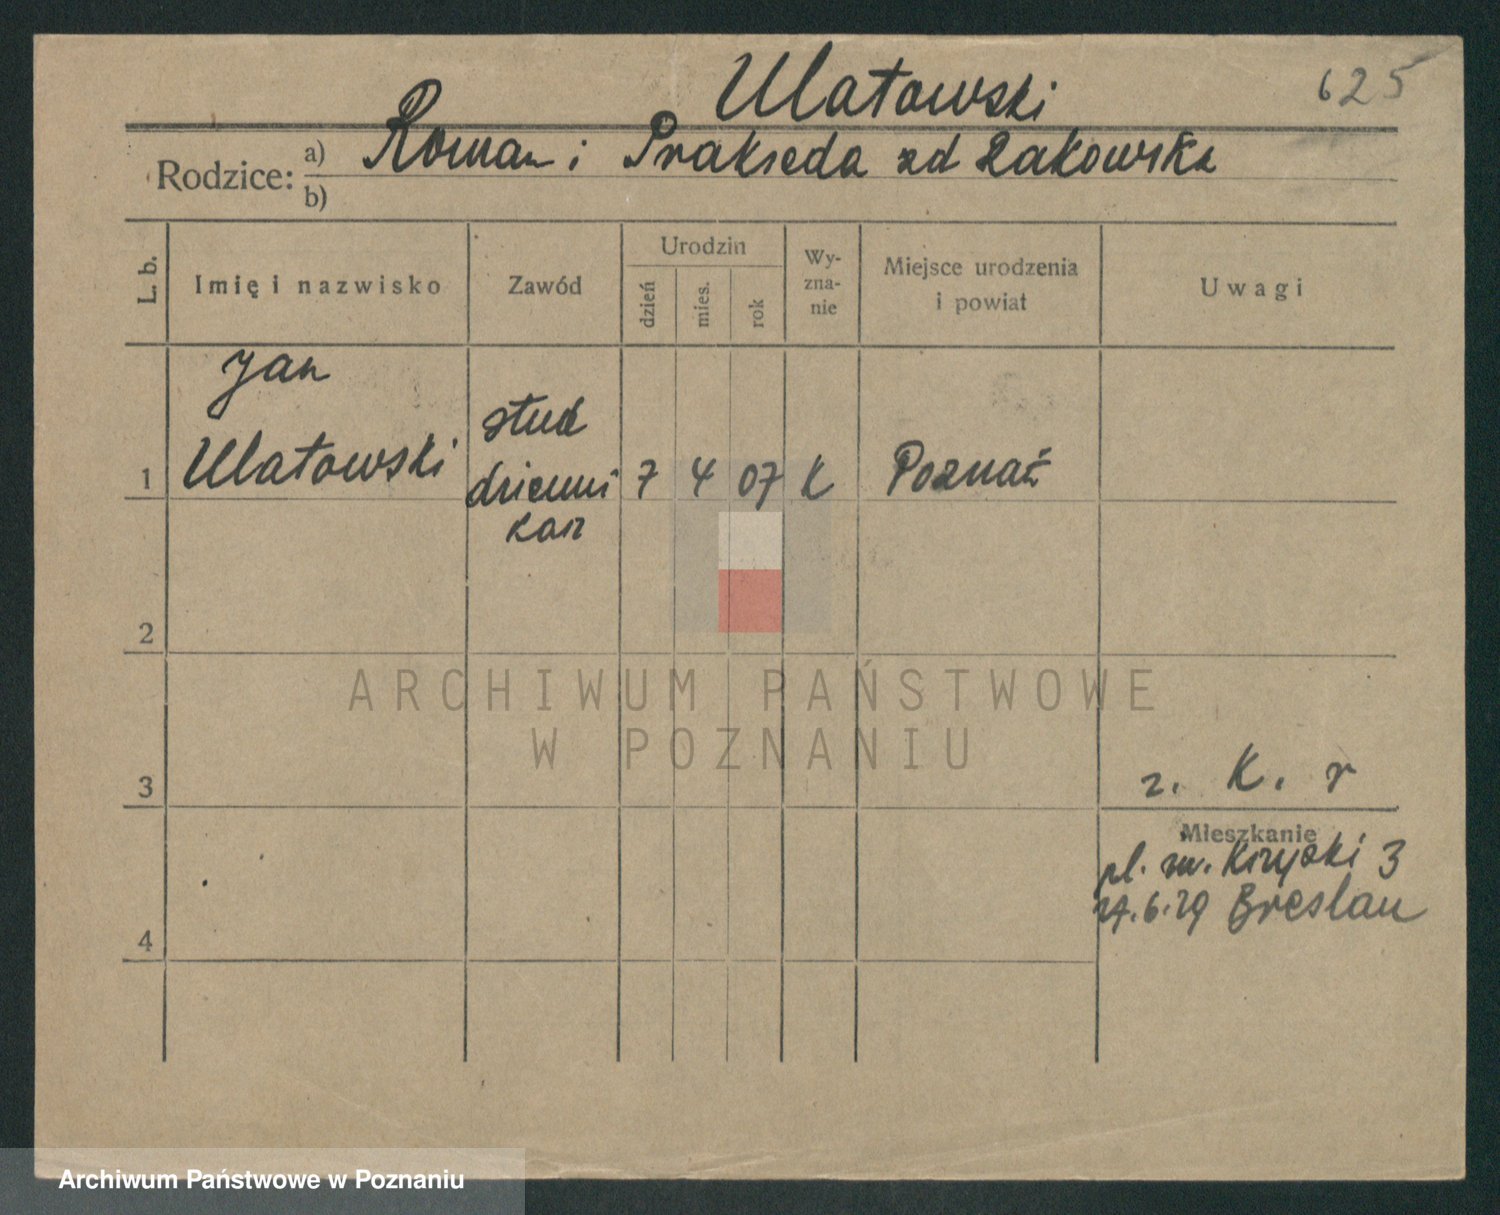 Ulatowski
625
Rodzice:
a) Roman i Prakseda zd Żakowska
b)
L. b.
Imię i nazwisko
Zawód
Urodzin
dzień
mies.
rok
Wy-
zna-
nie
Miejsce urodzenia
i powiat
Uwagi
Jan
Ulatowski
stud
dzienni
karz
1
7 4 07 K Poznań
2
ARCHIWUM PAŃSTWOWE
W POZNANIU
3
z. K. r
Mieszkanie
pl. św. Krzyski 3
4
24.6.29 Breslau
Archiwum Państwowe w Poznaniu